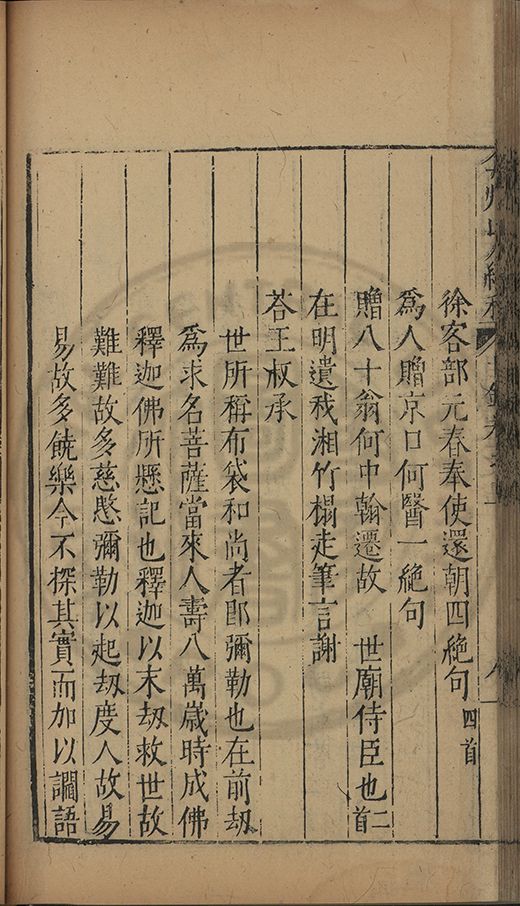 徐客部元春奉使還朝四絶句四首
爲人贈京口何醫一絶句
贈八十翁何中翰遷故　世廟侍臣也二首
在明遺我湘竹榻走筆言謝
荅王叔承
世所稱布袋和尚者郎彌勒也在前刼
爲求名菩薩當來人壽八萬歲時成佛
釋迦佛所懸記也釋迦以末刼救世故
難難故多慈愍彌勒以起刼度人故易
易故多饒樂今不探其實而加以讕語